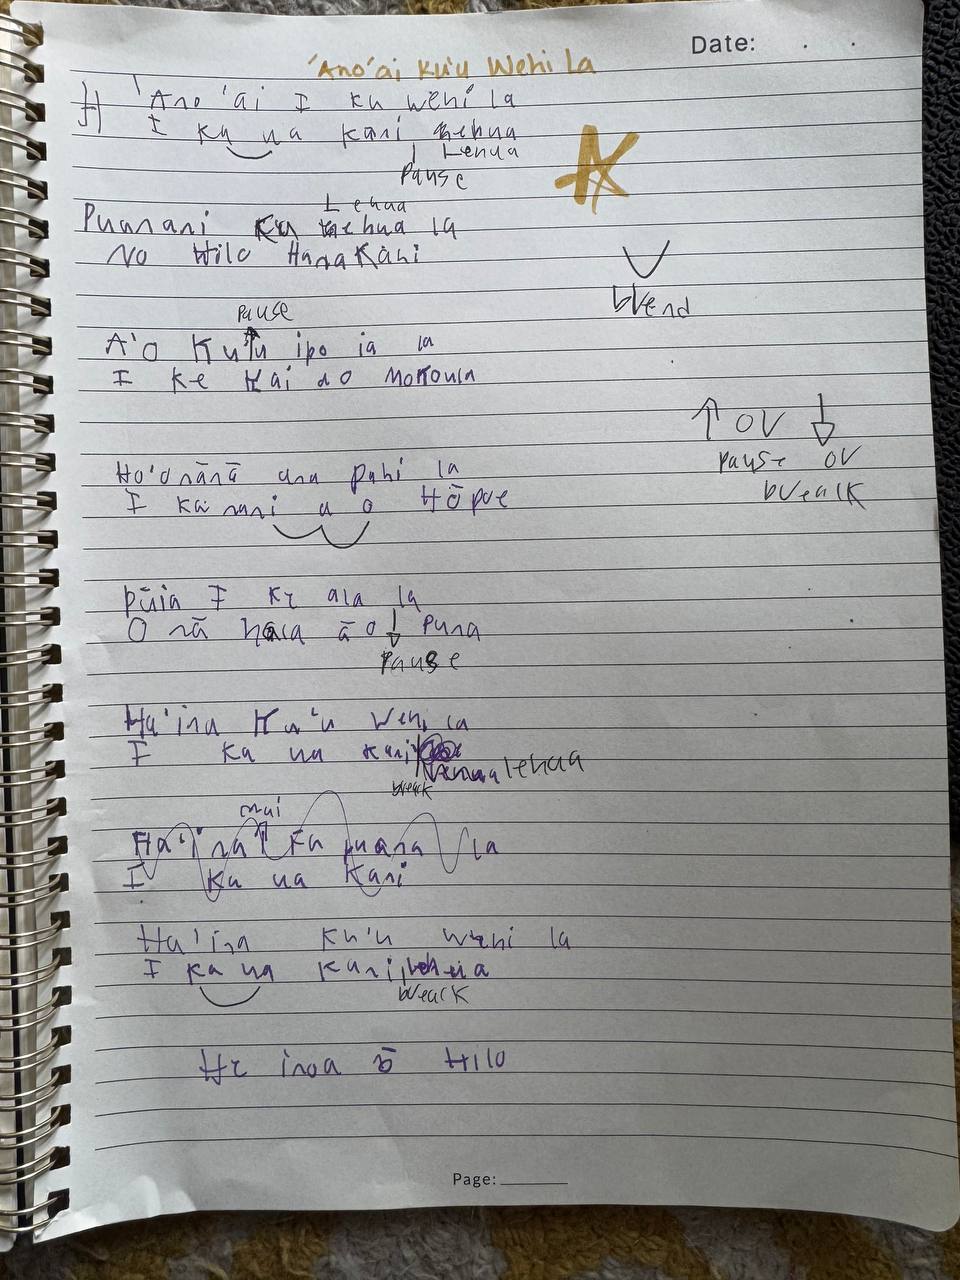 Date: . .
'Ano'ai Ku'u Wehi La
'Ano 'ai I ku wehi la
I ka ua kani lehua
Lenua
Pause
Lehua
Puanani Ku lehua la
No Hilo Hanakahi
blend
Pause
A'o Ku'u ipo ia la
I ke kai ao Mokoula
↑ or ↓
pause or
break
Ho'onānā ana pahi la
I ka nani a o Hōpoe
Pūia I ke ala la
O nā hala ā o Puna
Pause
Ha'ina Ku'u Wehi la
I ka ua kani lehua
break
mai
Ha'ina Ka puana la
I ka ua Kani
Ha'ina Ku'u Wehi la
I ka ua kani lehua
break
He inoa ō Hilo
Page: